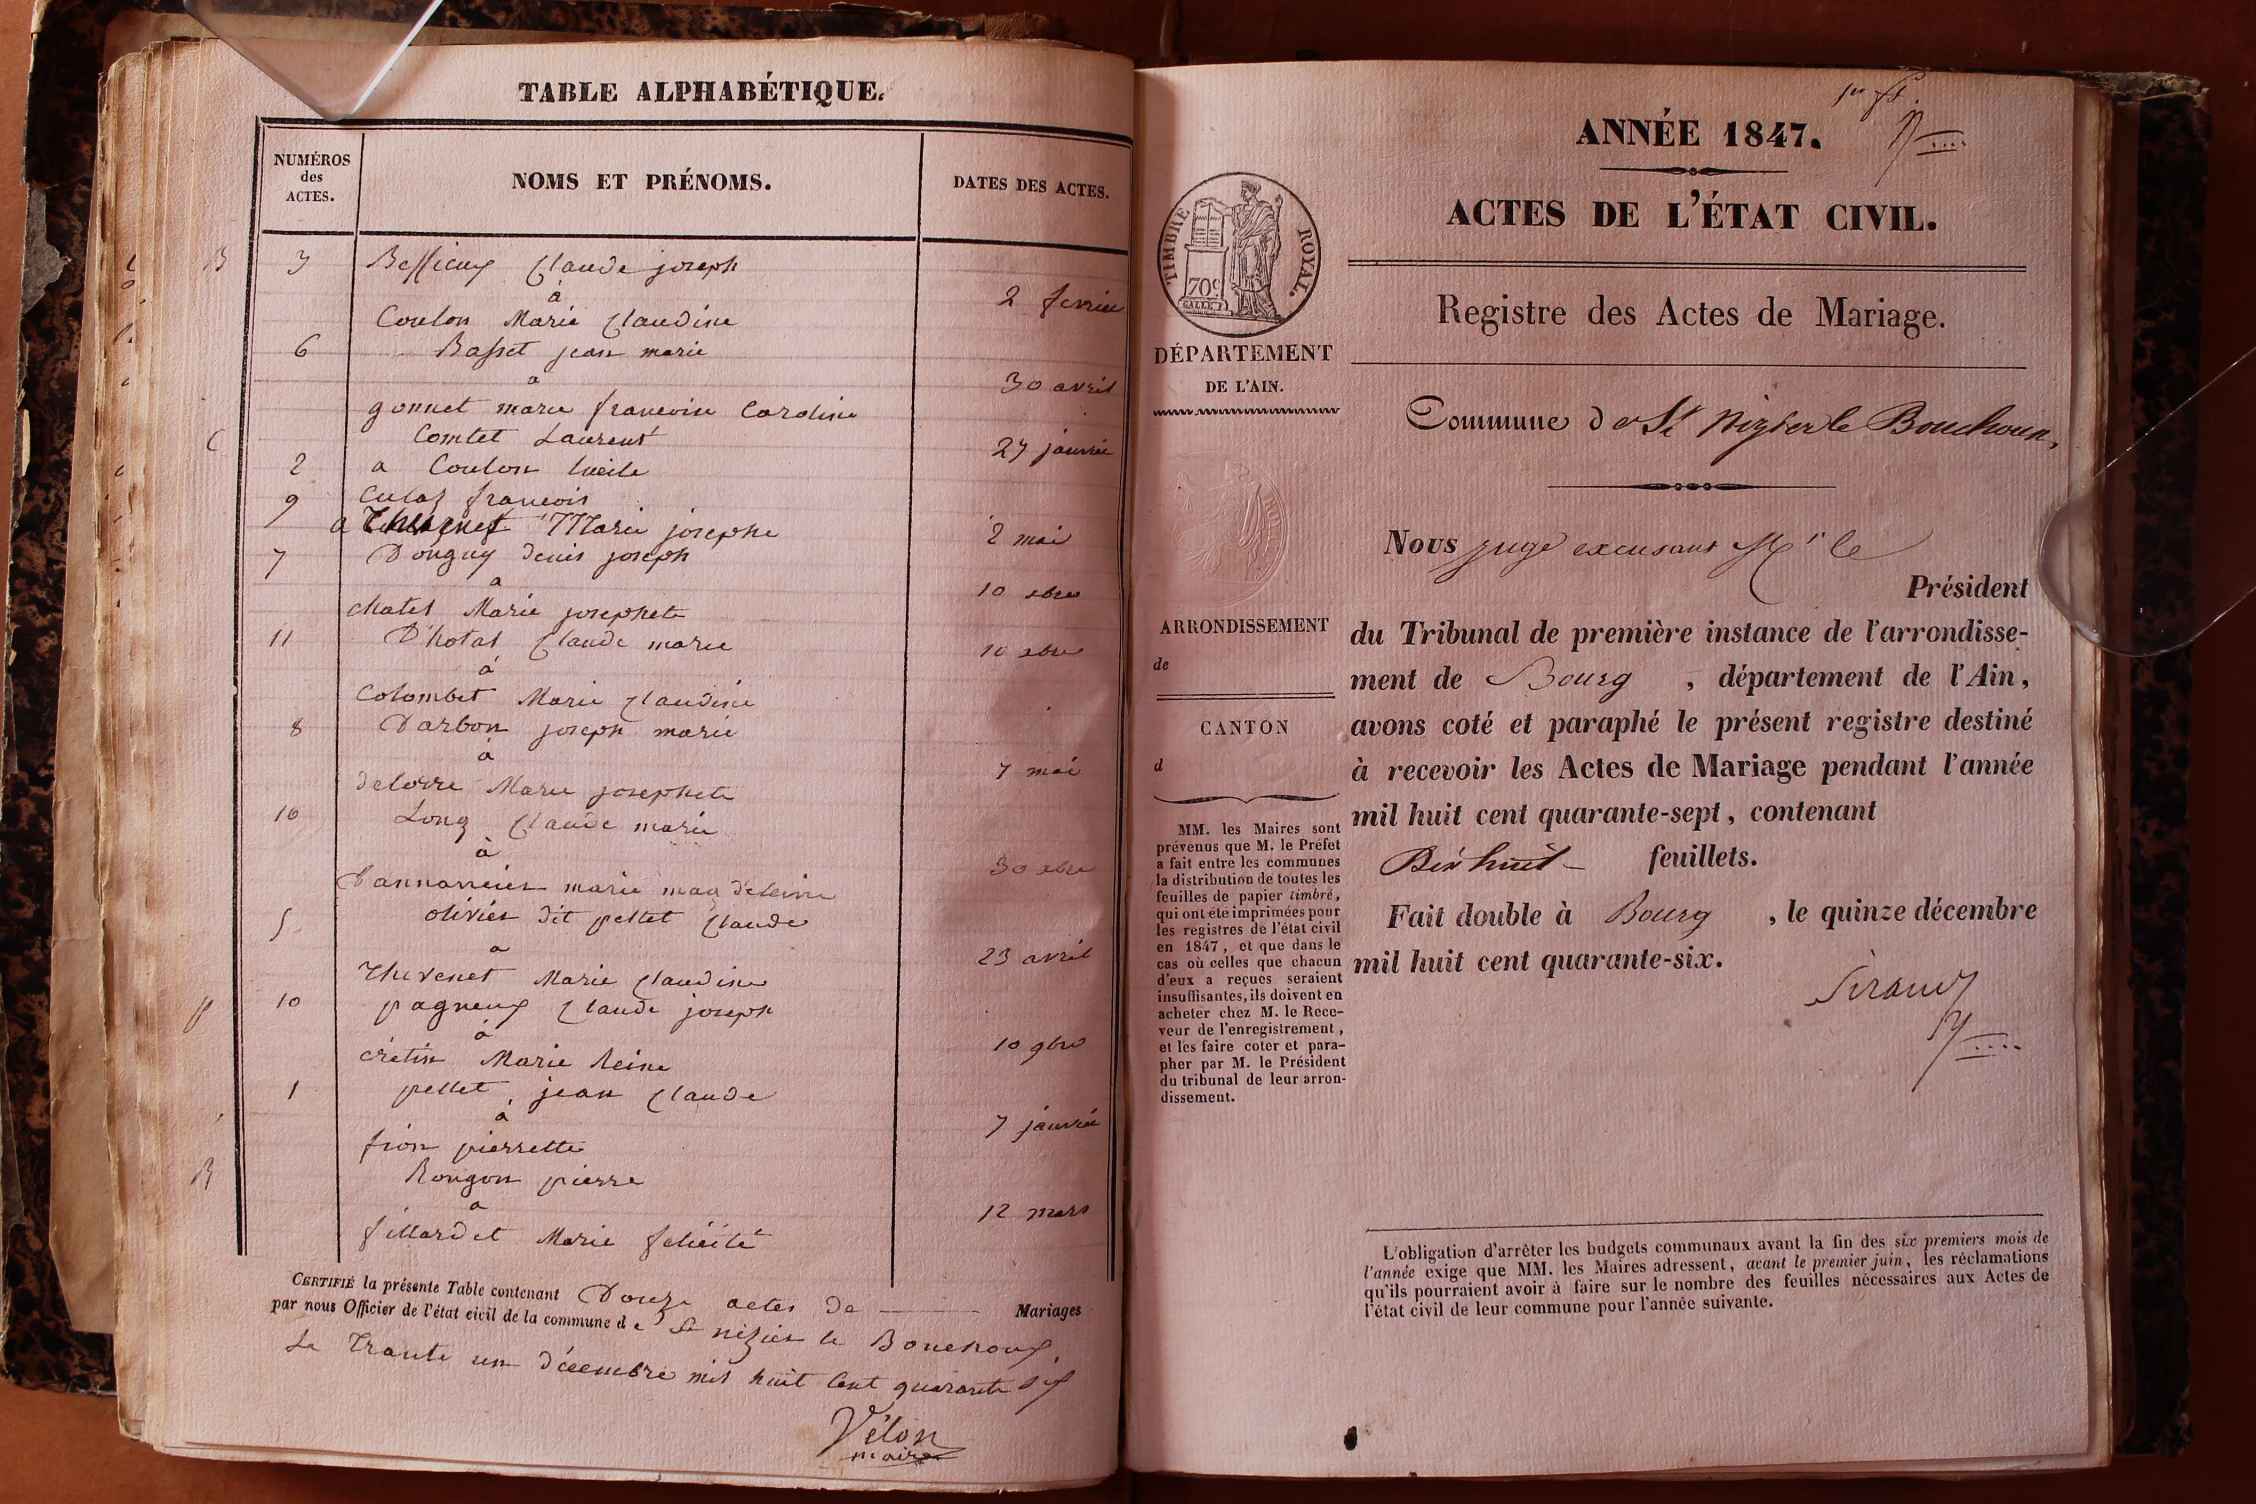 TABLE ALPHABÉTIQUE.
NUMÉROS
des
ACTES.
NOMS ET PRÉNOMS.
DATES DES ACTES.
B 3 Claude joseph
à
Coulon Marie Claudine 2 fevrier
6 Basset jean marie
a 30 avril
gonnet marie francoise Caroline
C Comtet Laurent
2 a Coulon lucile 27 janvier
9 Culaz francois
a Marie josephe 2 mai
7 Donguy denis joseph
a 10
chatel Marie josephete
11 D'hotal Claude marie 10
à
Colombet Marie Claudine
8 Darbon joseph marie
à 7 mai
delorre Marie josephete
10 Long Claude marie
à 30
marie magdeleine
5 olivier dit pellet Claude
a 23 avril
thevenet Marie Claudine
P 10 pagneux Claude joseph
à 10 9bre
crétin Marie Reine
1 pellet jean Claude
à 7 janvier
fion pierrette
R Rongon pierre
a 12 mars
fillardet Marie felicité
CERTIFIÉ la présente Table contenant Douze actes de Mariages
par nous Officier de l'état civil de la commune de St nizier le Bouchoux,
Le trante un décembre mil huit Cent quarante six
Vélon
maire
1er ft.
ANNÉE 1847.
ACTES DE L'ÉTAT CIVIL.
TIMBRE ROYAL.
70c
Registre des Actes de Mariage.
DÉPARTEMENT
DE L'AIN.
Commune de St Nizier le Bouchoux,
Nous juge excusant Mr le
Président
ARRONDISSEMENT
de
du Tribunal de première instance de l'arrondisse-
ment de Bourg , département de l'Ain,
CANTON
d
avons coté et paraphé le présent registre destiné
à recevoir les Actes de Mariage pendant l'année
mil huit cent quarante-sept, contenant
Dix huit feuillets.
Fait double à Bourg , le quinze décembre
mil huit cent quarante-six.
MM. les Maires sont
prévenus que M. le Préfet
a fait entre les communes
la distribution de toutes les
feuilles de papier timbré,
qui ont été imprimées pour
les registres de l'état civil
en 1847, et que dans le
cas où celles que chacun
d'eux a reçues seraient
insuffisantes, ils doivent en
acheter chez M. le Rece-
veur de l'enregistrement,
et les faire coter et para-
pher par M. le Président
du tribunal de leur arron-
dissement.
L'obligation d'arrêter les budgets communaux avant la fin des six premiers mois de
l'année exige que MM. les Maires adressent, avant le premier juin, les réclamations
qu'ils pourraient avoir à faire sur le nombre des feuilles nécessaires aux Actes de
l'état civil de leur commune pour l'année suivante.